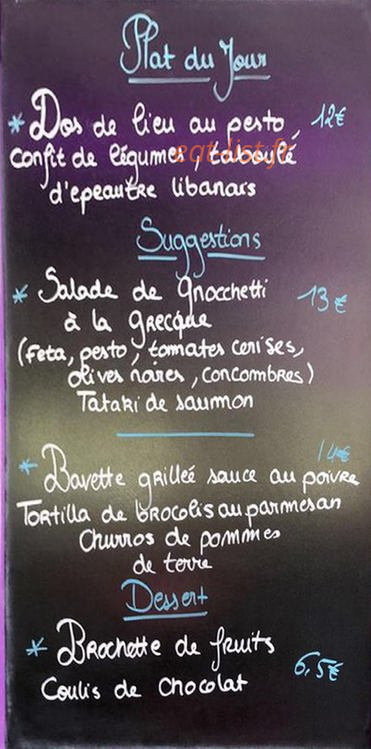 Plat du Jour
* Dos de lieu au pesto, 12€
confit de légumes, taboulé
eat-list.fr
d'epeautre libanais
Suggestions
* Salade de gnocchetti 13€
à la grecque
(Feta, pesto, tomates cerises,
olives noires, concombres)
Tataki de saumon
14€
* Bavette grilleé sauce au poivre
Tortilla de brocolis au parmesan
Churros de pommes
de terre
Dessert
* Brochette de fruits
6,5€
Coulis de chocolat